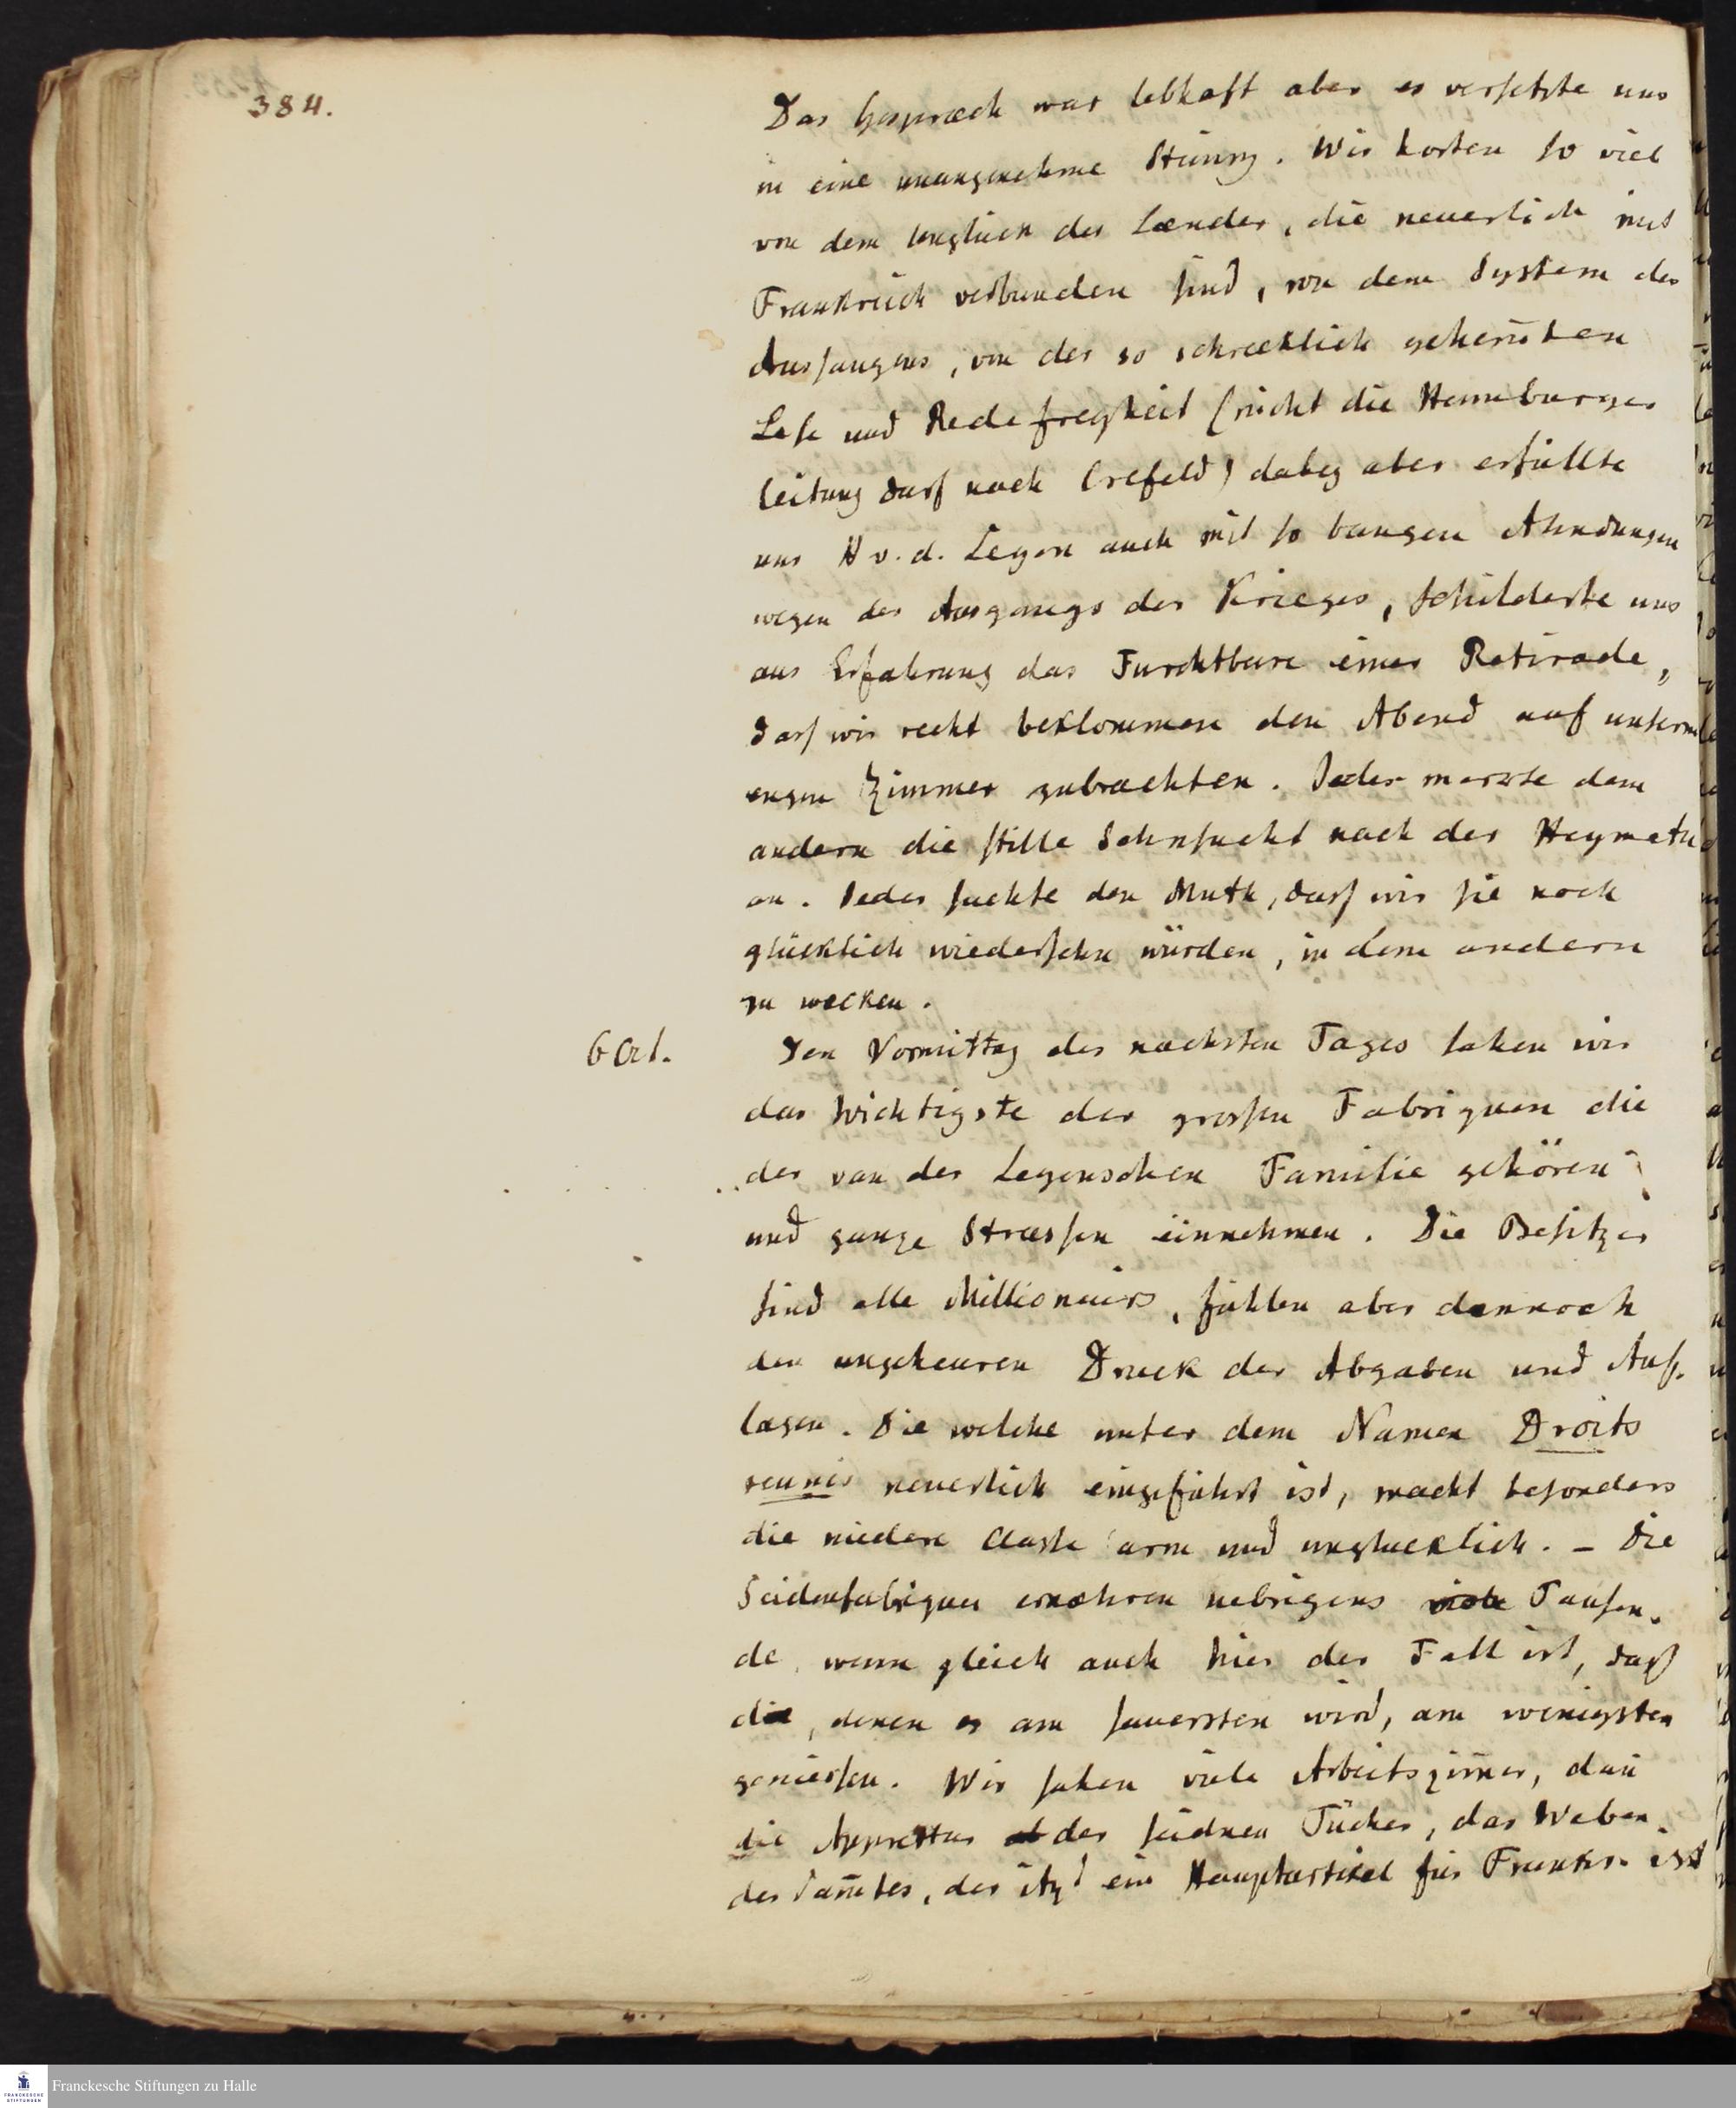 384.
Das Gespræch war lebhaft aber es versetzte uns
in eine unangenehme Stim̄ng. Wir horten so viel
von dem Unglück der Lænder, die neuerlich mit
Frankreich verbunden sind, von dem System des
Aussaugens, von der so schrecklich gehem̄ten
Lese und Redefreyheit (nicht die Hamburger
Zeitung darf nach Crefeld) dabey aber erfüllte
uns H v. d. Leyen auch mit so bangen Ahndungen
wegen des Ausgangs des Krieges, schilderte uns
aus Erfahrung das Furchtbare einer Retirade,
dass wir recht beklommen den Abend auf unserm
engen Zimmer zubrachten. Jeder merkte dem
andern die stille Sehnsucht nach der Heymath
an. Jeder suchte den Muth, dass wir sie noch
glücklich wiedersehn würden, in dem andern
zu wecken.
6 Oct.
Den Vormittag des nachsten Tages sahen wir
das Wichtigste der grossen Fabriquen die
der van der Leyenschen Familie gehören
und ganze Strassen einnehmen. Die Besitzer
sind alle Millionairs, fühlen aber dennoch
den ungeheuren Druck der Abgaben und Auf-
lagen. Die welche unter dem Namen Droits
reunis neuerlich eingeführt ist, macht besonders
die niedere Classe arm und unglucklich. – Die
Seidenfabriquen ernæhren uebrigens viele Tausen-
de, wenn gleich auch hier der Fall ist, daß
die, denen es am sauersten wird, am wenigsten
geniessen. Wir sahen viele Arbeitszim̄er, dan̄
die Apprettur der seidnen Tücher, das Weben
des Sam̄tes, der itzt ein Hauptartikel für Frankr. ist
Franckesche Stiftungen zu Halle
FRANCKESCHE
STIFTUNGEN